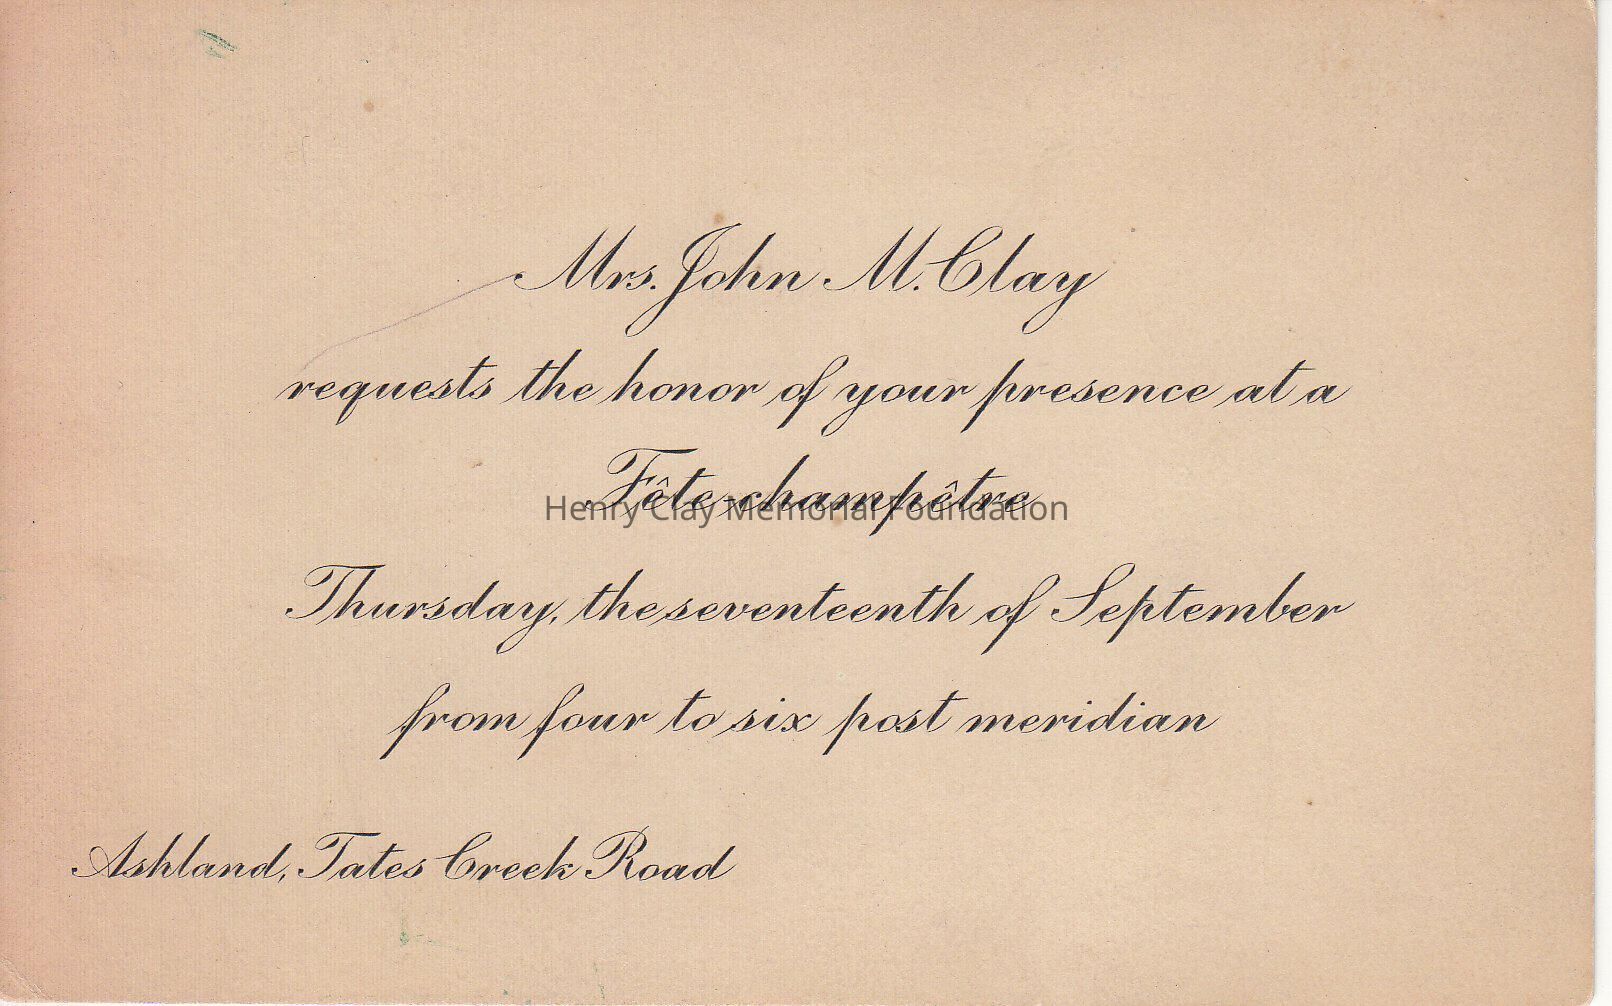 Mrs. John M. Clay
requests the honor of your presence at a
Fête-champêtre
Henry Clay Memorial Foundation
Thursday, the seventeenth of September
from four to six post meridian
Ashland, Tates Creek Road